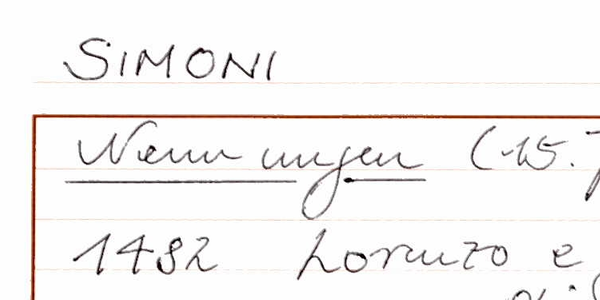 SIMONI
Nennungen (15.
1482 Lorenzo e